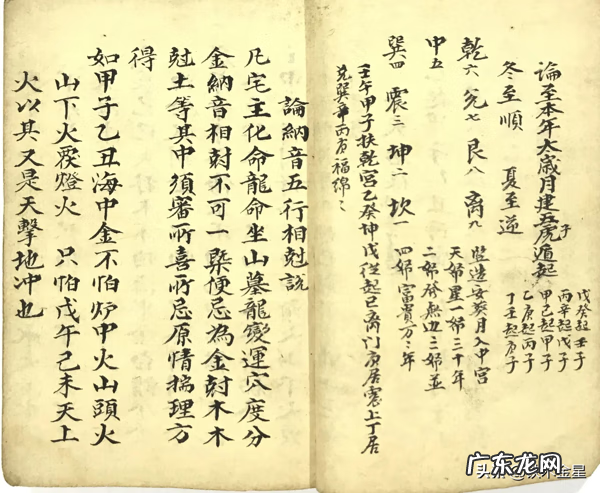 論至本年太歲月建五虎遁起
子
戊癸起壬子
丙辛起戊子
甲己起甲子
乙庚起丙子
丁壬起庚子
冬至順 夏至逆
乾六 兌七 艮八 离九
監造安葬月入中宮
天婦星一婦三十年
二婦發無边三婦並
四婦富貴万々年
中五
巽四 震三 坤二 坎一
壬午甲子扶乾宮乙癸坤戊從起巳离门庚居震上丁居
兑巽辛丙艮福綿々
論納音五行相尅說
凡宅主化命龍命坐山墓龍變運穴度分
金納音相尅不可一槩便忌為金尅木木
尅土等其中須審所喜所忌原情揣理方
得
如甲子乙丑海中金不怕炉中火山頭火
山下火霹燈火 只怕戊午己未天上
火以其又是天擊地冲也
广东龙网
头条@
金星